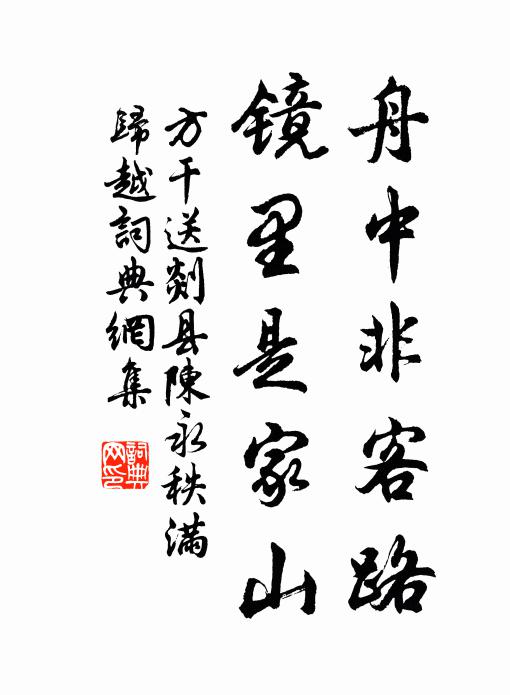 舟中非客路
镜里是家山
方干送剡县陳永秩滿
歸越詞典網集
詞典网印